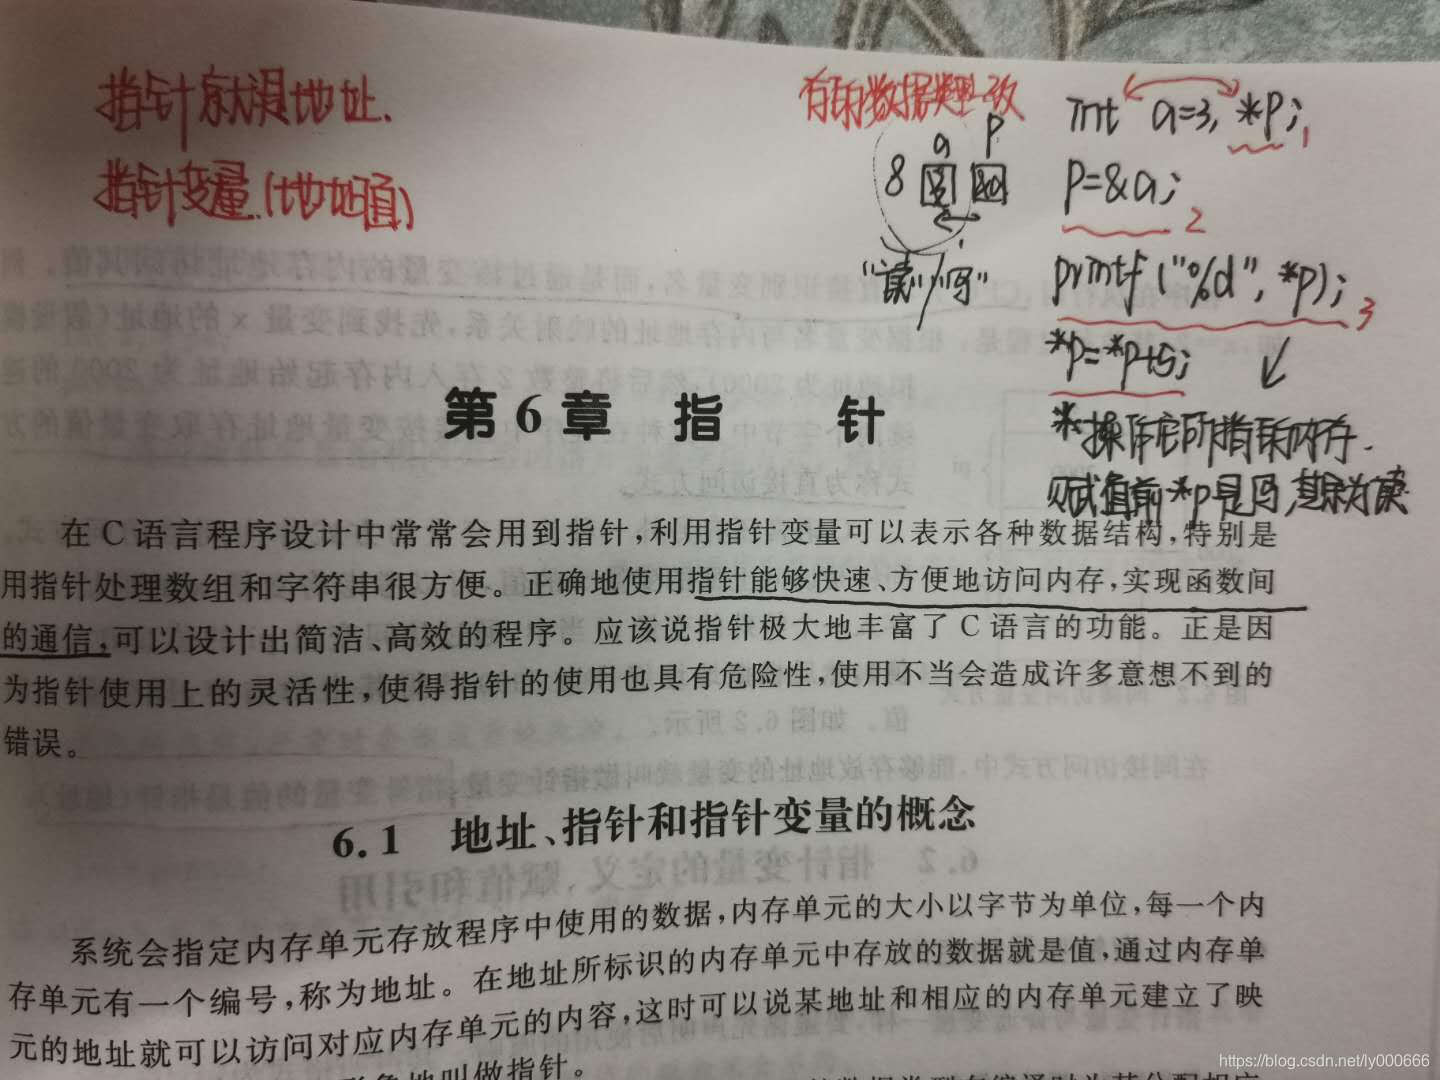 指针就是地址.
指针变量.(地址值)
int a=3, *p; 1
p=&a; 2
printf("%d", *p); 3
*p=*p+5;
a p
8 3 &a
"读"/"写"
*操作它所指的内存.
赋值前*p是写,其余为读
第6章 指 针
在C语言程序设计中常常会用到指针,利用指针变量可以表示各种数据结构,特别是
用指针处理数组和字符串很方便。正确地使用指针能够快速、方便地访问内存,实现函数间
的通信,可以设计出简洁、高效的程序。应该说指针极大地丰富了C语言的功能。正是因
为指针使用上的灵活性,使得指针的使用也具有危险性,使用不当会造成许多意想不到的
错误。
6.1 地址、指针和指针变量的概念
系统会指定内存单元存放程序中使用的数据,内存单元的大小以字节为单位,每一个内
存单元有一个编号,称为地址。在地址所标识的内存单元中存放的数据就是值,通过内存单
元的地址就可以访问对应内存单元的内容,这时可以说某地址和相应的内存单元建立了映
形象地叫做指针。
https://blog.csdn.net/ly000666